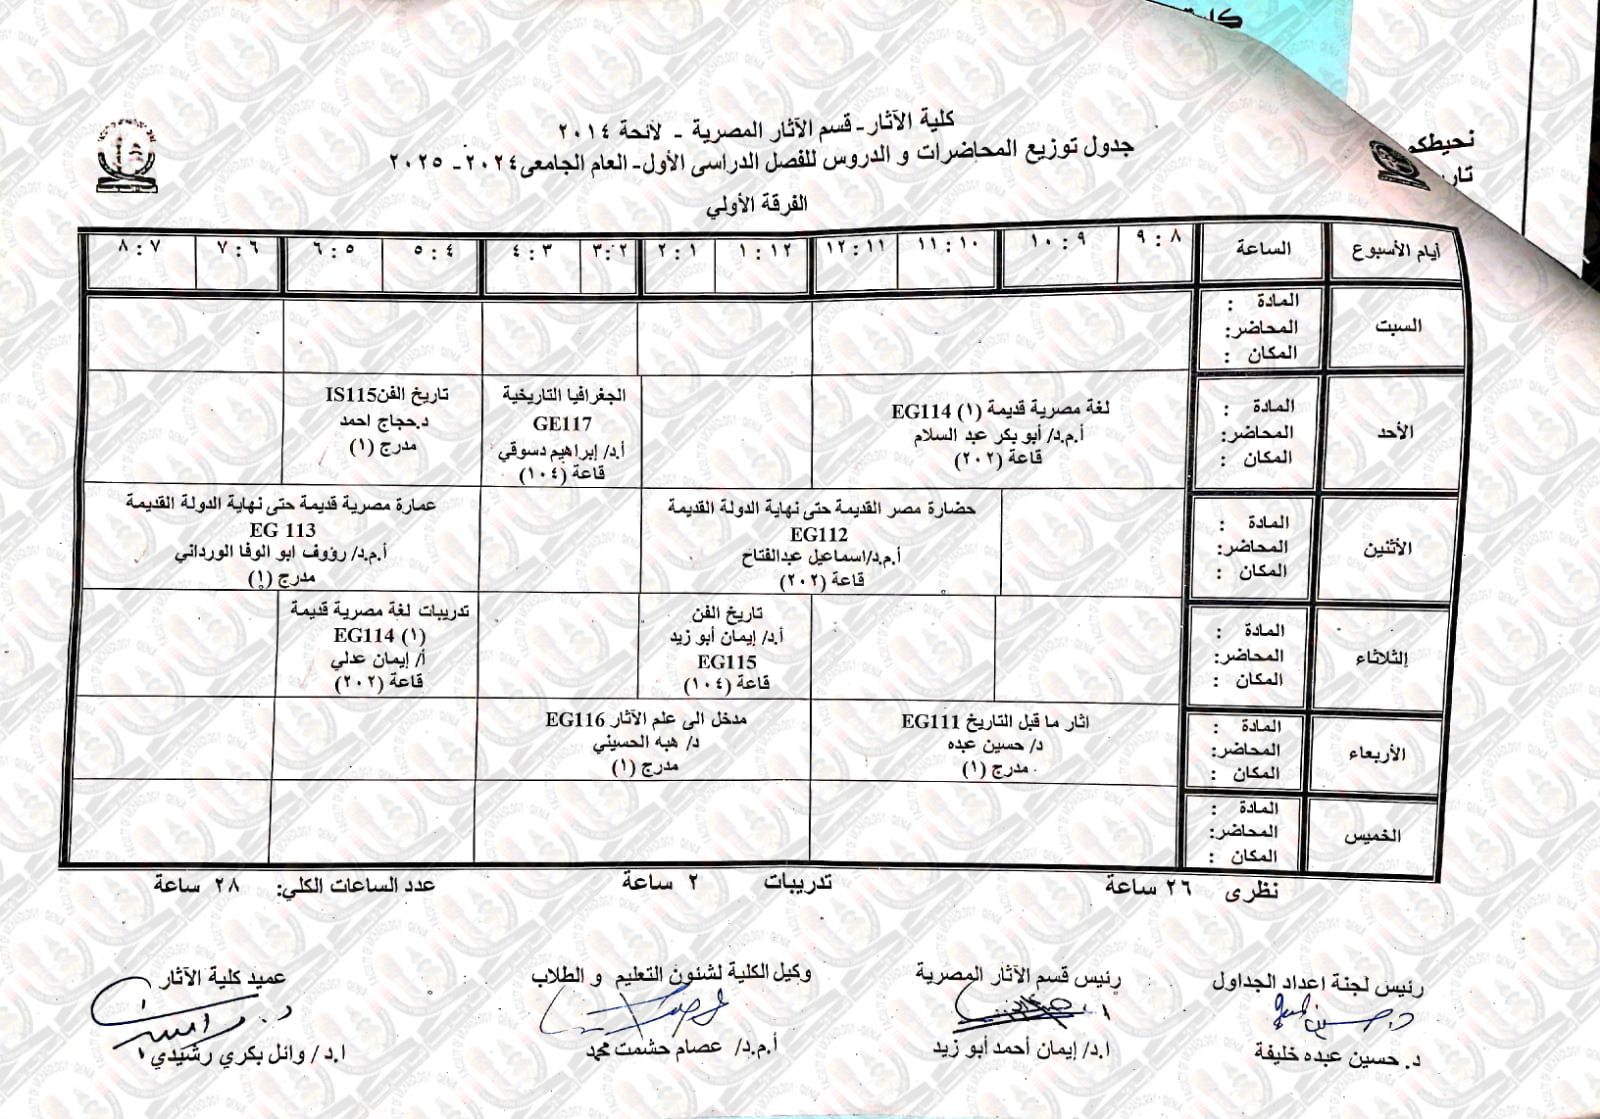 كلية
نحيطكم
كلية الآثار- قسم الآثار المصرية - لائحة ٢٠١٤
جدول توزيع المحاضرات و الدروس للفصل الدراسى الأول- العام الجامعى٢٠٢٤- ٢٠٢٥
الفرقة الأولي
أيام الأسبوع الساعة ٨ : ٩ ٩ : ١٠ ١٠ : ١١ ١١ : ١٢ ١٢ : ١ ١ : ٢ ٢ : ٣ ٣ : ٤ ٤ : ٥ ٥ : ٦ ٦ : ٧ ٧ : ٨
السبت
المادة :
المحاضر:
المكان :
الأحد
المادة :
المحاضر:
المكان :
لغة مصرية قديمة (١) EG114
أ.م.د/ أبو بكر عبد السلام
قاعة (٢٠٢)
الجغرافيا التاريخية
GE117
أ.د/ إبراهيم دسوقي
قاعة (١٠٤)
تاريخ الفنIS115
د.حجاج احمد
مدرج (١)
الأثنين
المادة :
المحاضر:
المكان :
حضارة مصر القديمة حتى نهاية الدولة القديمة
EG112
أ.م.د/اسماعيل عبدالفتاح
قاعة (٢٠٢)
عمارة مصرية قديمة حتى نهاية الدولة القديمة
EG 113
أ.م.د/ رؤوف ابو الوفا الورداني
مدرج (١)
الثلاثاء
المادة :
المحاضر:
المكان :
تاريخ الفن
أ.د/ إيمان أبو زيد
EG115
قاعة (١٠٤)
تدريبات لغة مصرية قديمة
(١) EG114
أ/ إيمان عدلي
قاعة (٢٠٢)
الأربعاء
المادة :
المحاضر:
المكان :
اثار ما قبل التاريخ EG111
د/ حسين عبده
مدرج (١)
مدخل الى علم الآثار EG116
د/ هبه الحسيني
مدرج (١)
الخميس
المادة :
المحاضر:
المكان :
نظرى ٢٦ ساعة تدريبات ٢ ساعة عدد الساعات الكلي: ٢٨ ساعة
رئيس لجنة اعداد الجداول
د. حسين عبده خليفة
رئيس قسم الآثار المصرية
ا.د/ إيمان أحمد أبو زيد
وكيل الكلية لشئون التعليم و الطلاب
أ.م.د/ عصام حشمت محمد
عميد كلية الآثار
ا.د / وائل بكري رشيدي